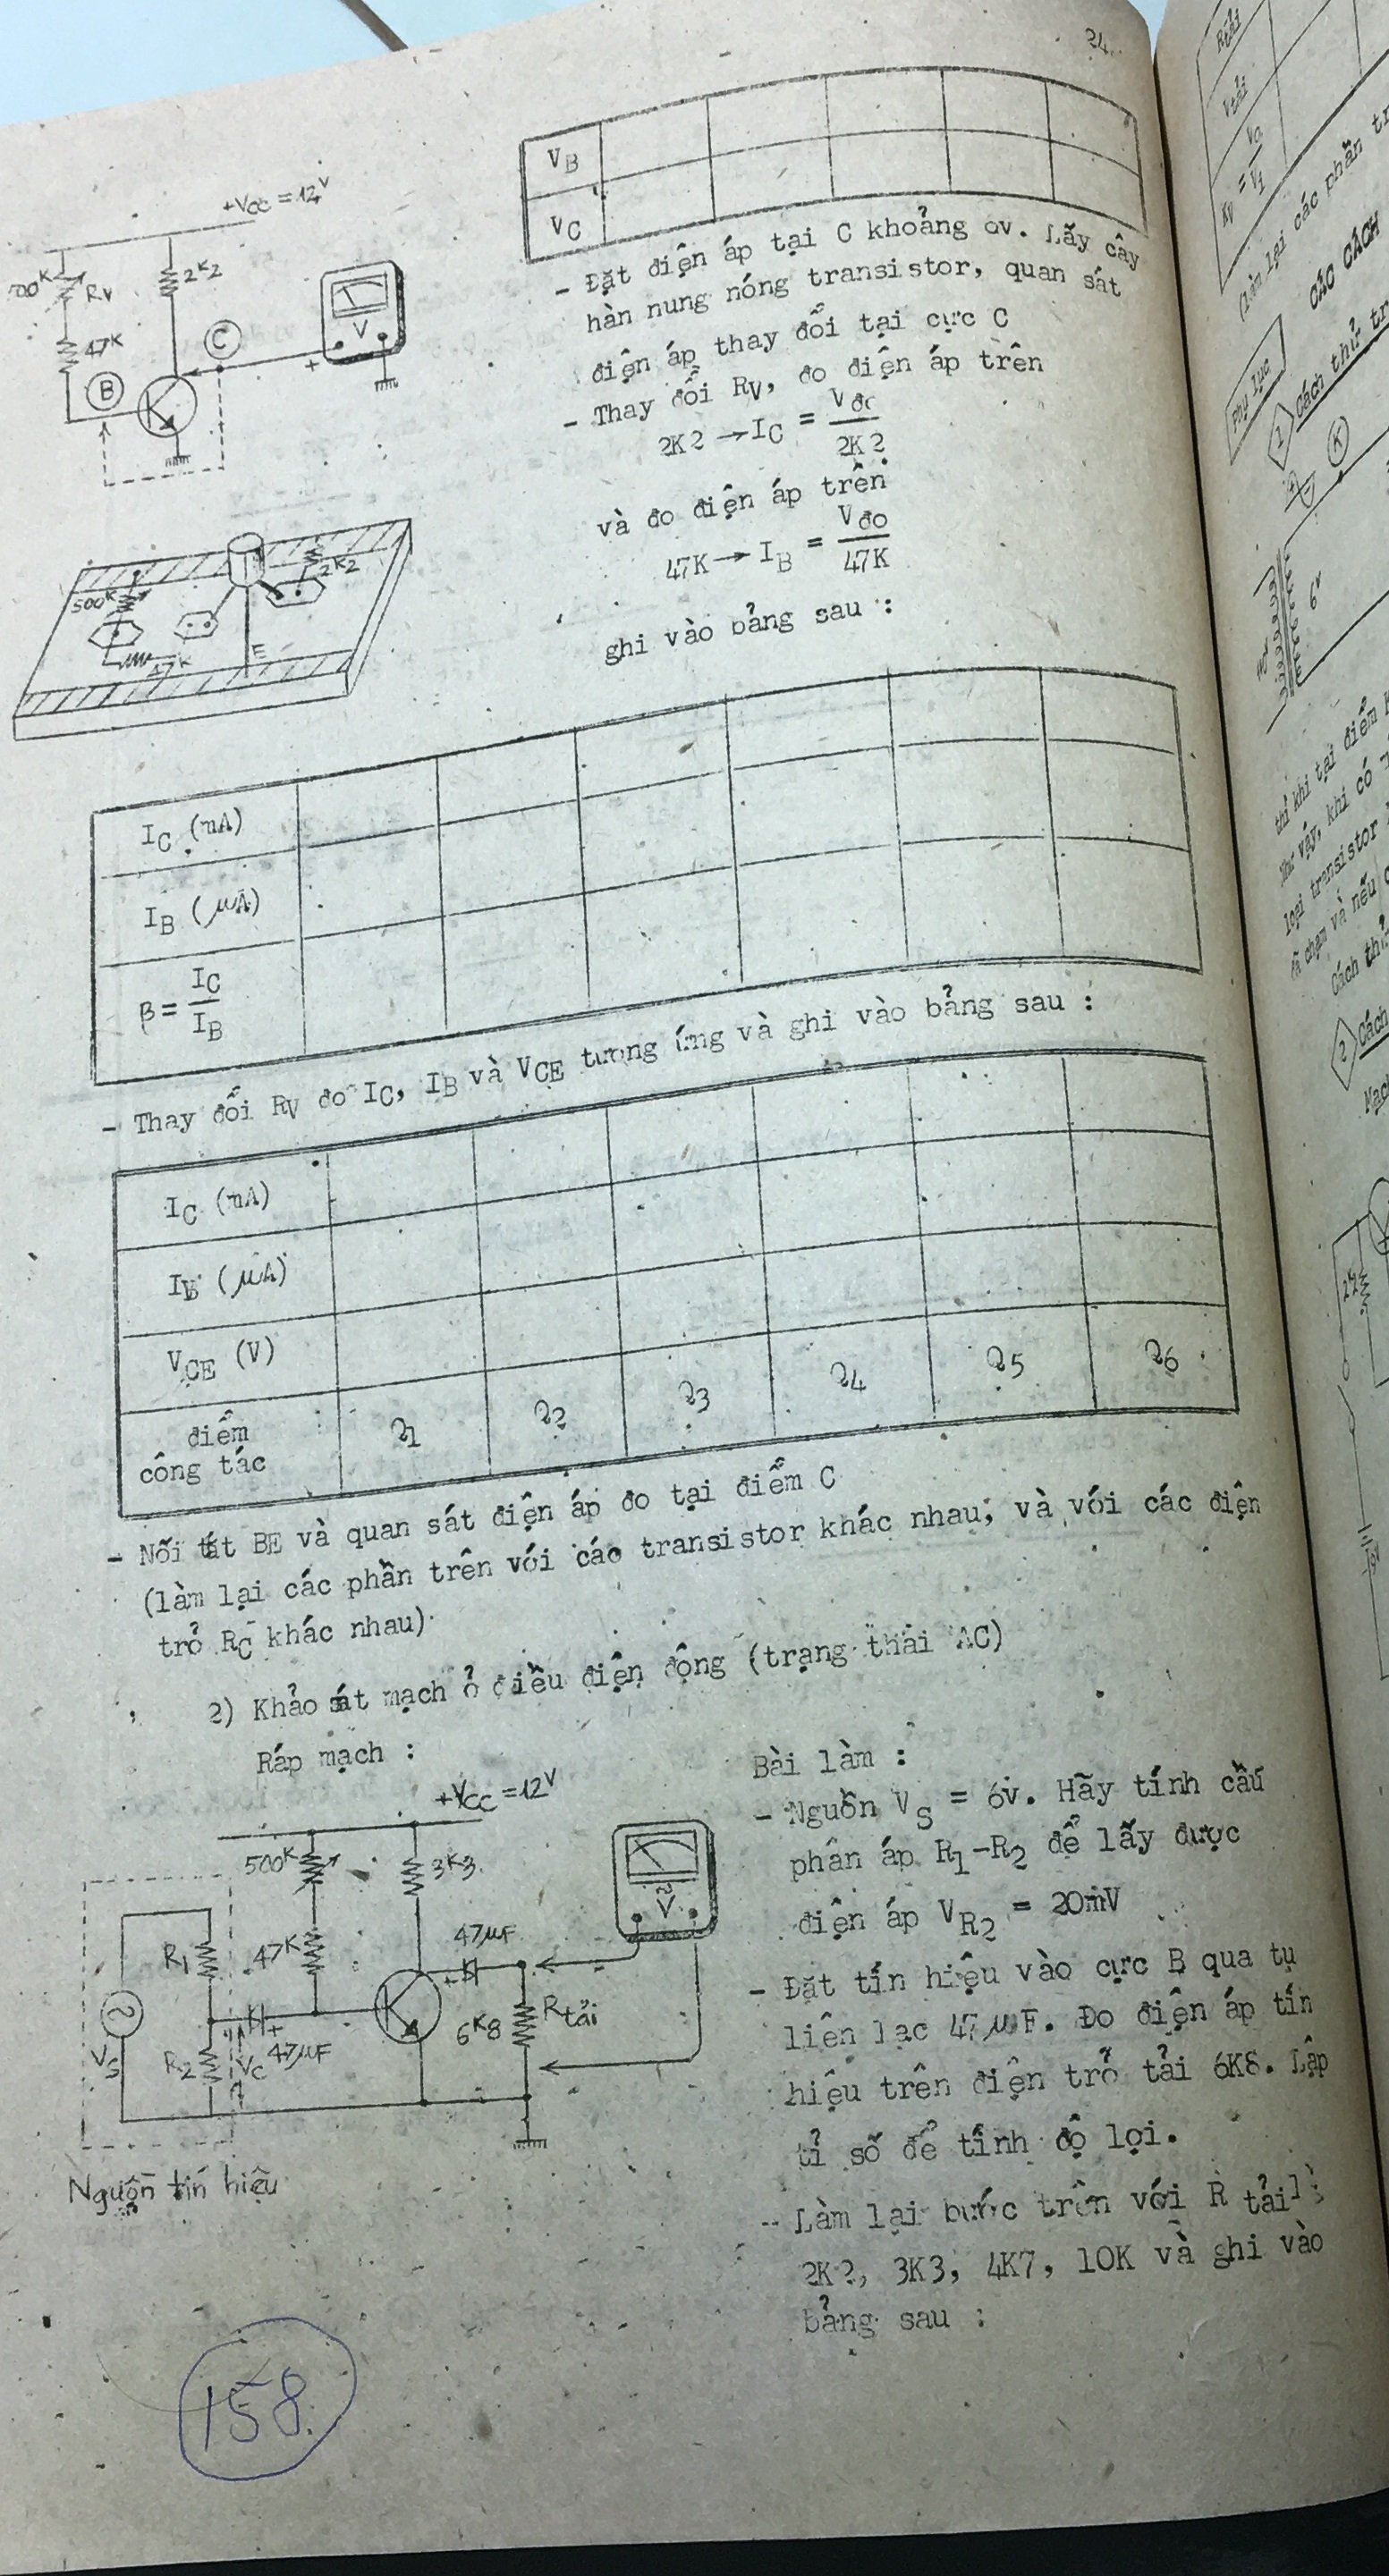 24
V_B
V_C
+V_CC = 12V
R_V
2K2
47K
B
C
V
+
- Đặt điện áp tại C khoảng 6v. Lấy cây
hàn nung nóng transistor, quan sát
điện áp thay đổi tại cực C
- Thay đổi R_V, đo điện áp trên
2K2 → I_C = V đo / 2K2
và đo điện áp trên
47K → I_B = V đo / 47K
ghi vào bảng sau :
500K
2K2
47K
E
I_C (mA)
I_B (µA)
β = I_C / I_B
- Thay đổi R_V đo I_C, I_B và V_CE tương ứng và ghi vào bảng sau :
I_C (mA)
I_B (µA)
V_CE (V)
điểm
công tác
Q1 Q2 Q3 Q4 Q5 Q6
- Nối tắt BE và quan sát điện áp đo tại điểm C
(làm lại các phần trên với các transistor khác nhau, và với các điện
trở R_C khác nhau).
2) Khảo sát mạch ở điều điện động (trạng thái AC)
Ráp mạch :
+V_CC = 12V
500K
3K3
R1
47K
47µF
+
V
6K8
R tải
V_S
R2
V_C
47µF
+
Nguồn tín hiệu
Bài làm :
- Nguồn V_S = 6v. Hãy tính cầu
phân áp R1-R2 để lấy được
điện áp V_R2 = 20mV
- Đặt tín hiệu vào cực B qua tụ
liên lạc 47µF. Đo điện áp tín
hiệu trên điện trở tải 6K8. Lập
tỉ số để tính độ lợi.
- Làm lại bước trên với R tải là
2K2, 3K3, 4K7, 10K và ghi vào
bảng sau :
158
R tải
V tải
(làm lại các phần
CÁC CÁCH
Phụ lục
1
Cách thử
K
6v
thì khi tại điểm
Như vậy, khi có
loại transistor
và nếu
Cách
2
Cách